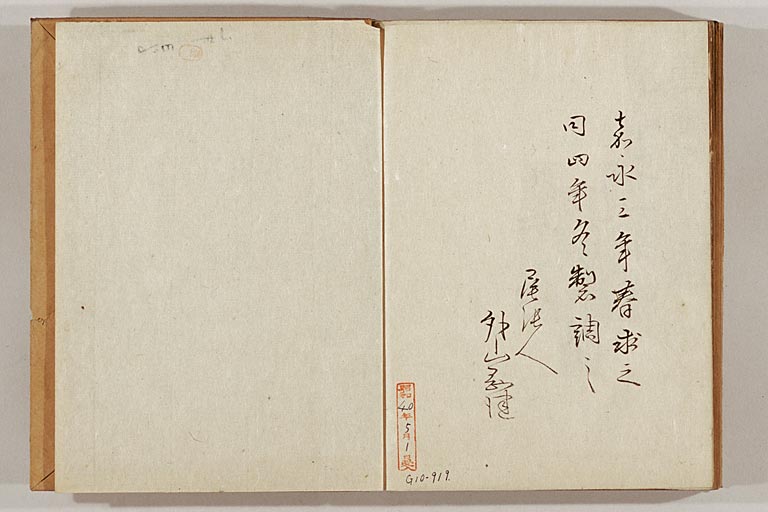 嘉永三年春求之
同四年冬製調之
尾張人
外山
昭和40年5月1日受
G10-919